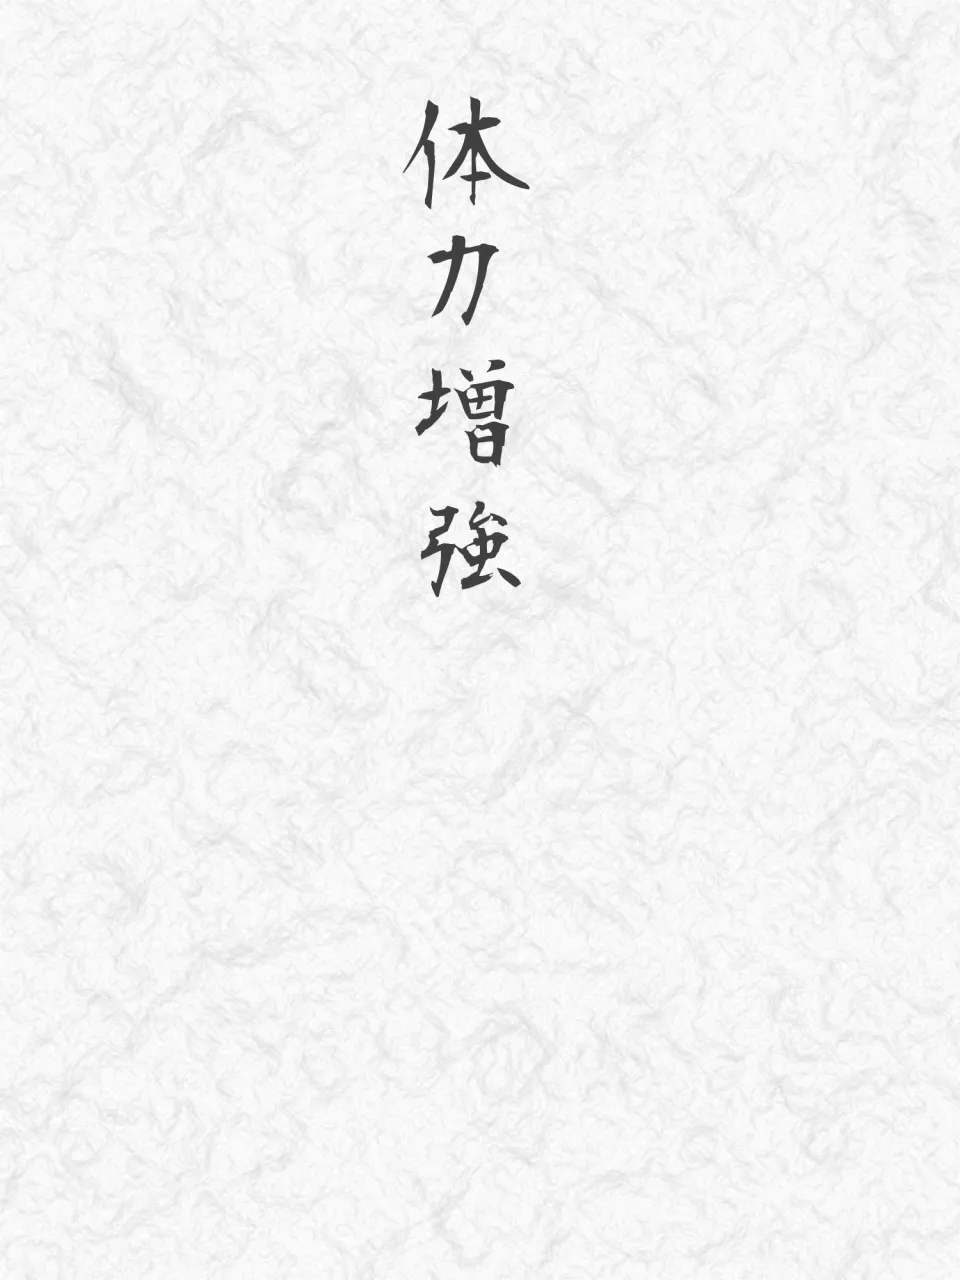 体力増強